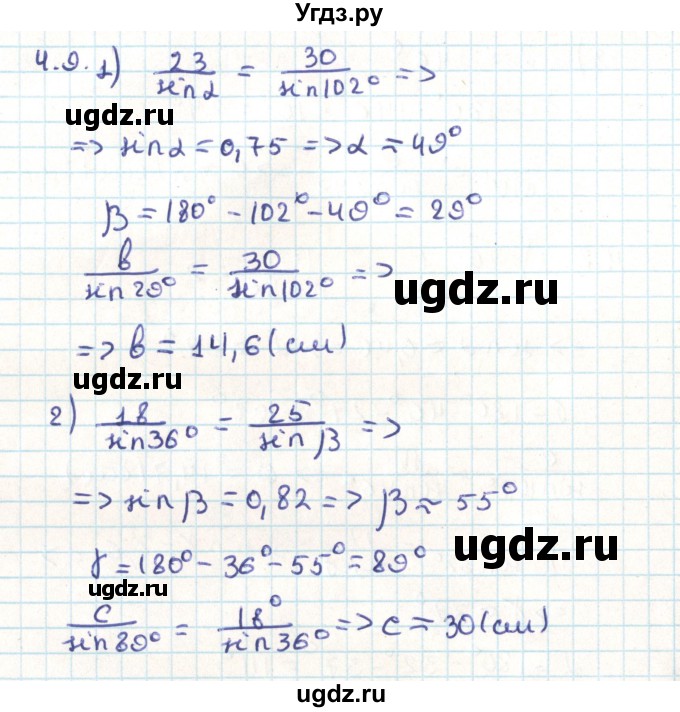 Угдз.ру
4.9. 1) 23/sin α = 30/sin 102° =>
ugdz.ru
=> sin α = 0,75 => α ≈ 49°
β = 180° - 102° - 49° = 29°
в/sin 29° = 30/sin 102° =>
ugdz.ru
=> в = 14,6 (см)
ugdz.ru
2) 18/sin 36° = 25/sin β =>
=> sin β = 0,82 => β ≈ 55°
ugdz.ru
γ = 180° - 36° - 55° = 89°
c/sin 89° = 18°/sin 36° => c ≈ 30 (см)
ugdz.ru
ugdz.ru